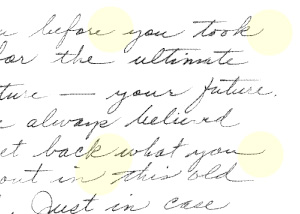 before you took
for the ultimate
ture — your future.
always believed
et back what you
out in this old
. Just in case